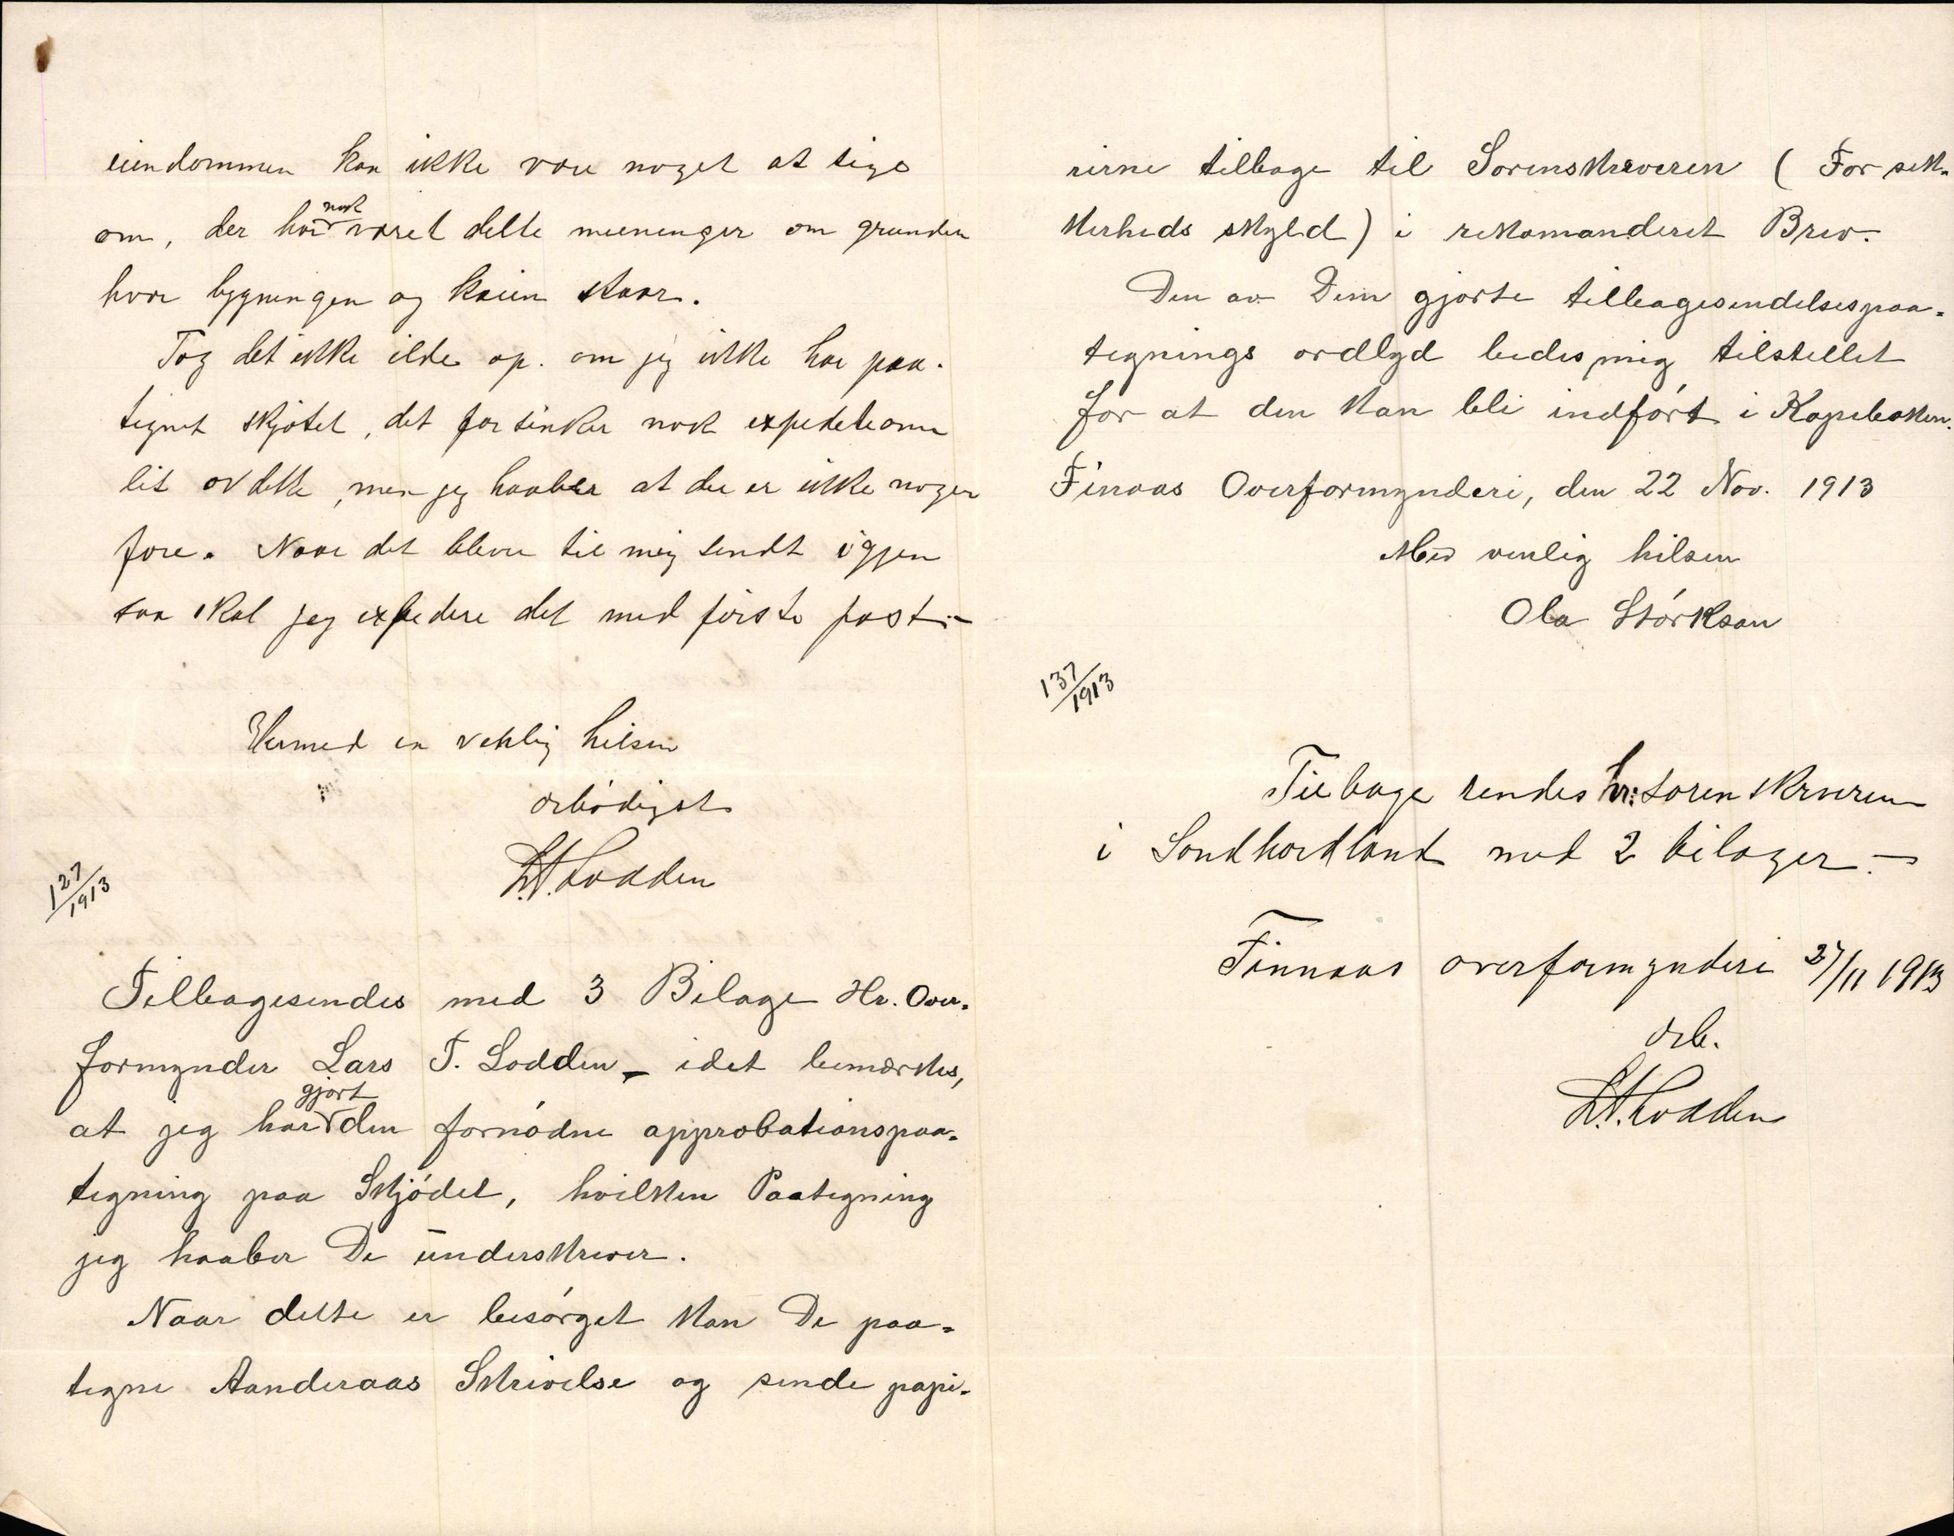 eiendommen kan ikke være noget at sige
om, der har nok været delte meeninger om grunden
hvor bygningen og kaien staar.
Tag det ikke ilde op. om jeg ikke har paa-
tegnet skjøtet, det forsinker nok expeditionen
lit av dette, men jeg haaber at der er ikke nogen
fare. Naar det blever til mig sendt igjen
saa skal jeg expedere det med første post.-
Hermed en venlig hilsen
ærbødigst
L.T. Lodden
127/1913
Tilbagesendes med 3 Bilage Hr. Over-
formynder Lars T. Lodden - idet bemærkes,
at jeg har gjort den fornødne approbationspaa-
tegning paa Skjødet, hvilken Paategning
jeg haaber De underskriver.
Naar dette er besørget kan De paa-
tegne Aanderaas Skrivelse og sende papi-
rerne tilbage til Sorenskriveren (For sik-
kerheds skyld) i rekomanderet Brev.
Den av Dem gjorte tilbagesendelsespaa-
tegnings ordlyd bedes mig tilstillet
for at den kan bli indført i Kopiboken.
Finaas Overformynderi, den 22 Nov. 1913
Med venlig hilsen
Ola Størkson
137/1913
Tilbage sendes hr: sorenskriveren
i Søndhordland med 2 bilager.-
Finnaas overformynderi 27/11 1913
ærb.
L.T. Lodden